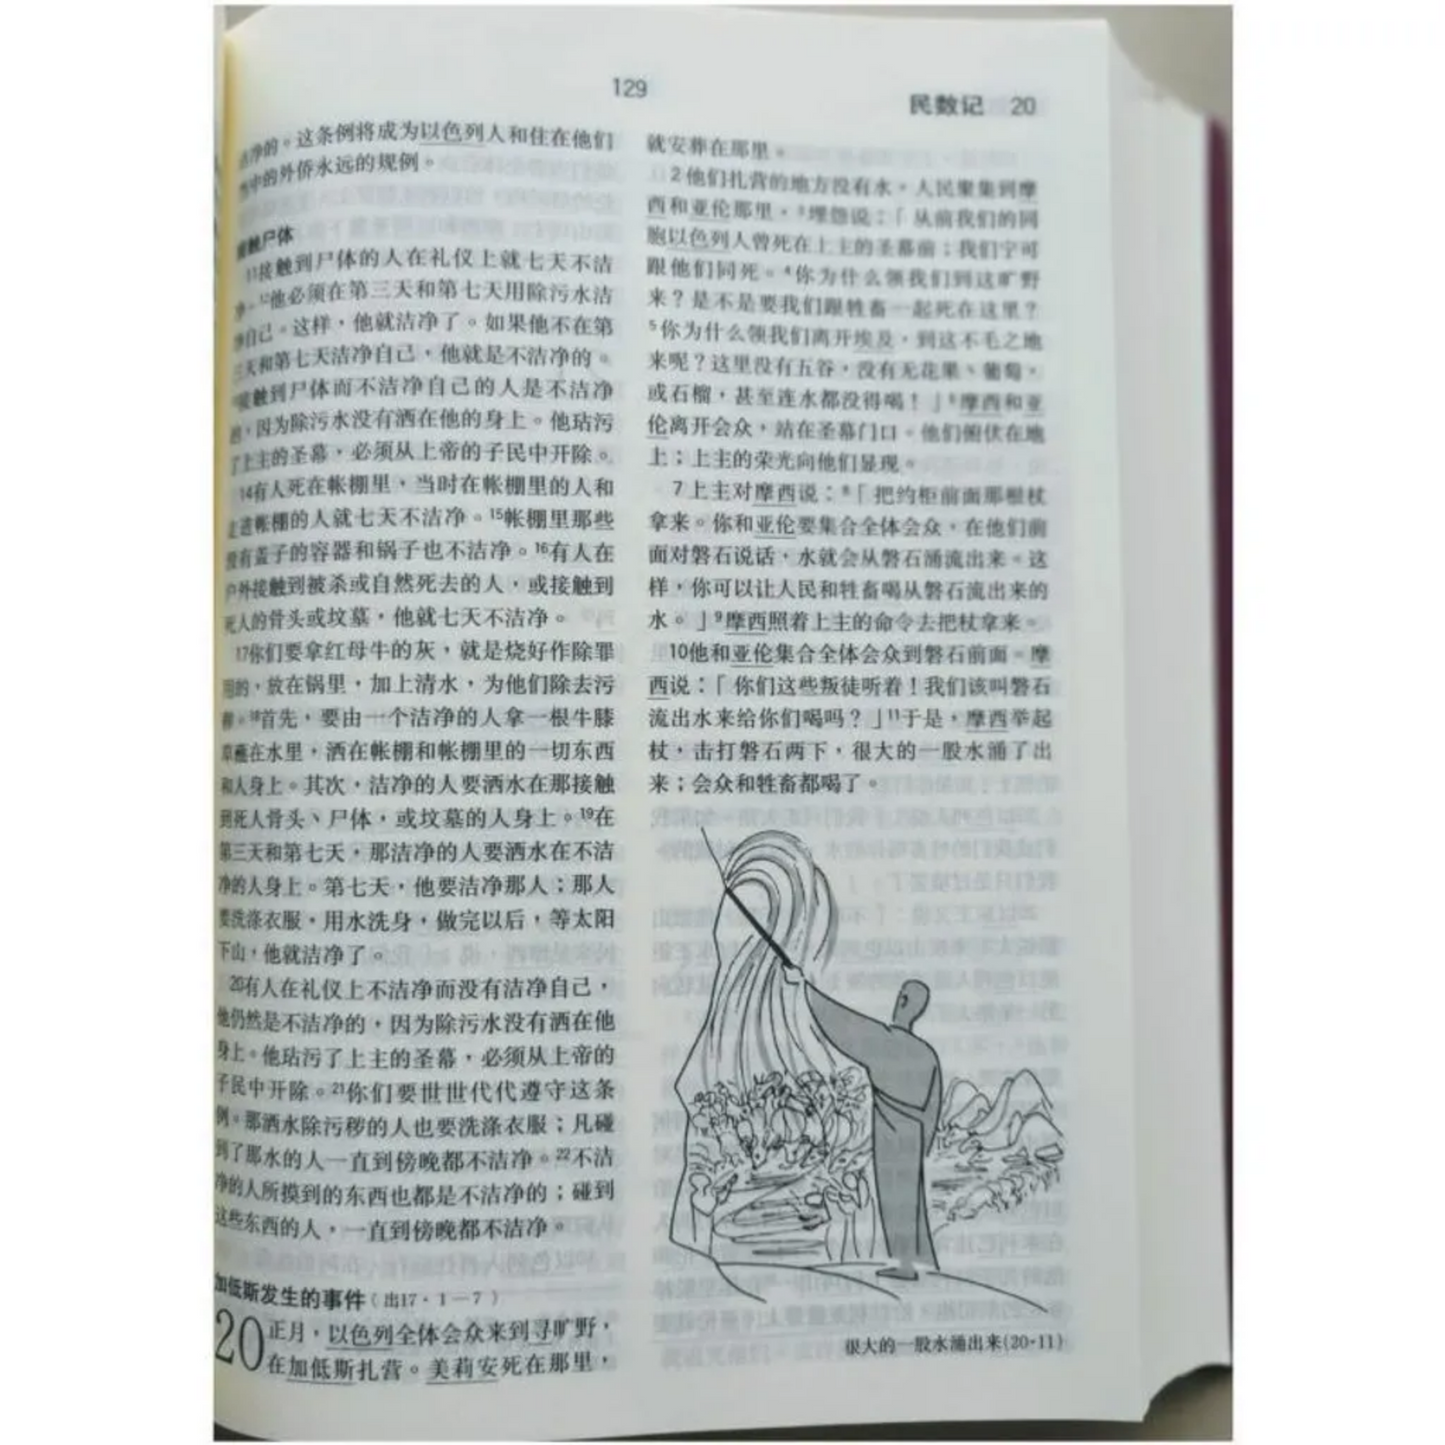 129
民数记 20
洁净的。这条例将成为以色列人和住在他们
当中的外侨永远的规例。
接触尸体
11接触到尸体的人在礼仪上就七天不洁
净。12他必须在第三天和第七天用除污水洁
净自己。这样,他就洁净了。如果他不在第
三天和第七天洁净自己,他就是不洁净的。
接触到尸体而不洁净自己的人是不洁净
的,因为除污水没有洒在他的身上。他玷污
了上主的圣幕,必须从上帝的子民中开除。
14有人死在帐棚里,当时在帐棚里的人和
走进帐棚的人就七天不洁净。15帐棚里那些
没有盖子的容器和锅子也不洁净。16有人在
户外接触到被杀或自然死去的人,或接触到
死人的骨头或坟墓,他就七天不洁净。
17你们要拿红母牛的灰,就是烧好作除罪
用的,放在锅里,加上清水,为他们除去污
秽。18首先,要由一个洁净的人拿一根牛膝
草蘸在水里,洒在帐棚和帐棚里的一切东西
和人身上。其次,洁净的人要洒水在那接触
到死人骨头、尸体,或坟墓的人身上。19在
第三天和第七天,那洁净的人要洒水在不洁
净的人身上。第七天,他要洁净那人;那人
要洗涤衣服,用水洗身,做完以后,等太阳
下山,他就洁净了。
20有人在礼仪上不洁净而没有洁净自己,
他仍然是不洁净的,因为除污水没有洒在他
身上。他玷污了上主的圣幕,必须从上帝的
子民中开除。21你们要世世代代遵守这条
例。那洒水除污秽的人也要洗涤衣服;凡碰
到了那水的人一直到傍晚都不洁净。22不洁
净的人所摸到的东西也都是不洁净的;碰到
这些东西的人,一直到傍晚都不洁净。
加低斯发生的事件(出17·1—7)
20正月,以色列全体会众来到寻旷野,
在加低斯扎营。美莉安死在那里,
就安葬在那里。
2他们扎营的地方没有水。人民聚集到摩
西和亚伦那里,3埋怨说:「从前我们的同
胞以色列人曾死在上主的圣幕前;我们宁可
跟他们同死。4你为什么领我们到这旷野
来?是不是要我们跟牲畜一起死在这里?
5你为什么领我们离开埃及,到这不毛之地
来呢?这里没有五谷,没有无花果、葡萄,
或石榴,甚至连水都没得喝!」6摩西和亚
伦离开会众,站在圣幕门口。他们俯伏在地
上;上主的荣光向他们显现。
7上主对摩西说:8「把约柜前面那根杖
拿来。你和亚伦要集合全体会众,在他们前
面对磐石说话,水就会从磐石涌流出来。这
样,你可以让人民和牲畜喝从磐石流出来的
水。」9摩西照着上主的命令去把杖拿来。
10他和亚伦集合全体会众到磐石前面。摩
西说:「你们这些叛徒听着!我们该叫磐石
流出水来给你们喝吗?」11于是,摩西举起
杖,击打磐石两下,很大的一股水涌了出
来;会众和牲畜都喝了。
很大的一股水涌出来(20·11)